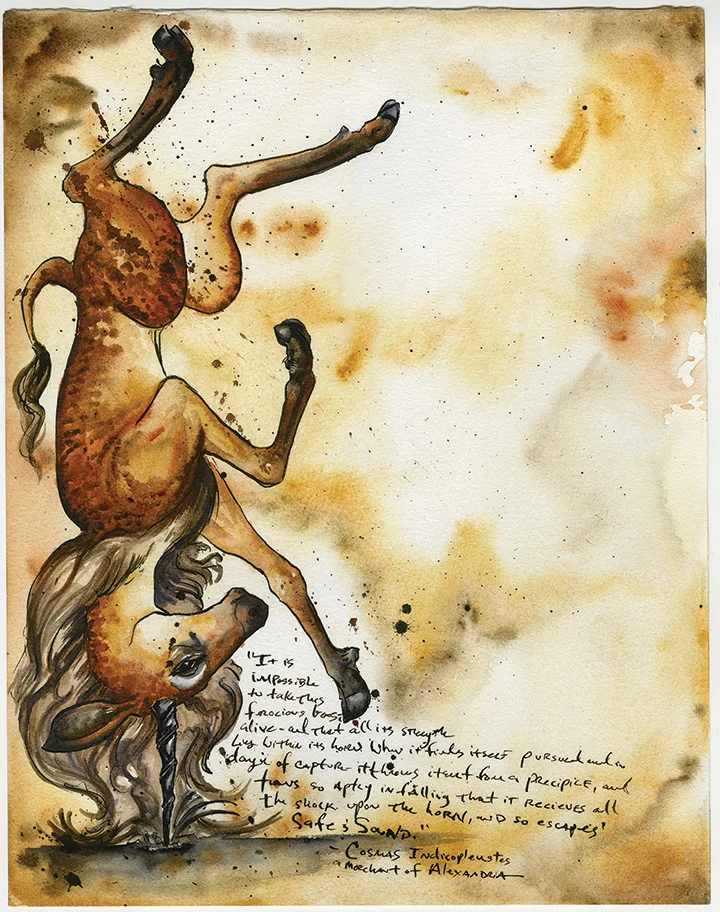 "It is
impossible
to take this
ferocious beast
alive - and that all its strength
lies within its horn. When it finds itself pursued and in
danger of capture it throws itself from a precipice, and
turns so aptly in falling that it recieves all
the shock upon the horn, and so escapes
Safe & Sound."
- Cosmas Indicopleustes
a merchant of Alexandria